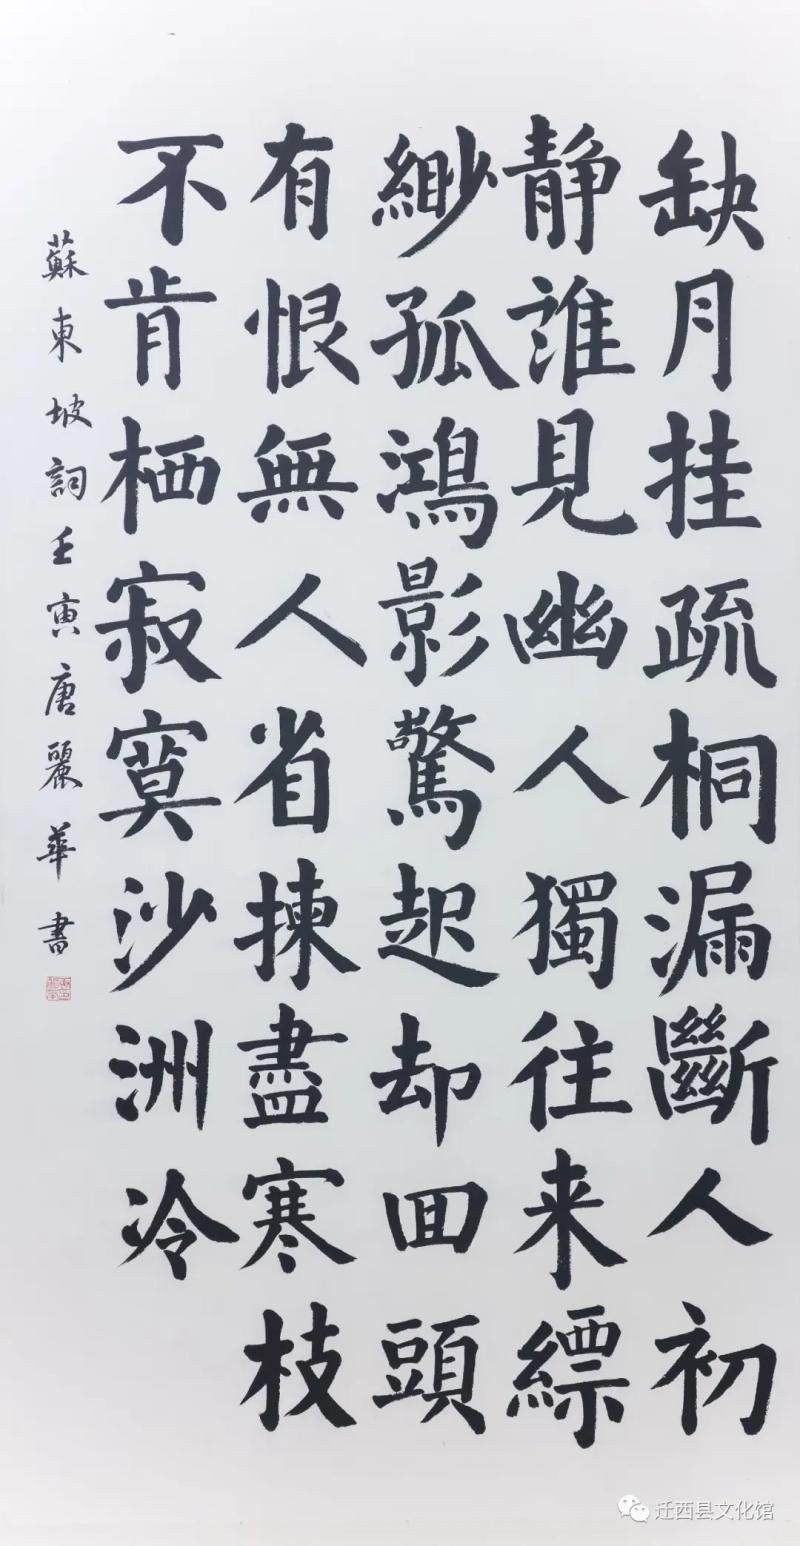 缺月挂疏桐漏斷人初
静誰見幽人獨往来縹
緲孤鴻影驚起却回頭
有恨無人省揀盡寒枝
不肯栖寂寞沙洲冷
蘇東坡詞壬寅唐麗華書
迁西县文化馆